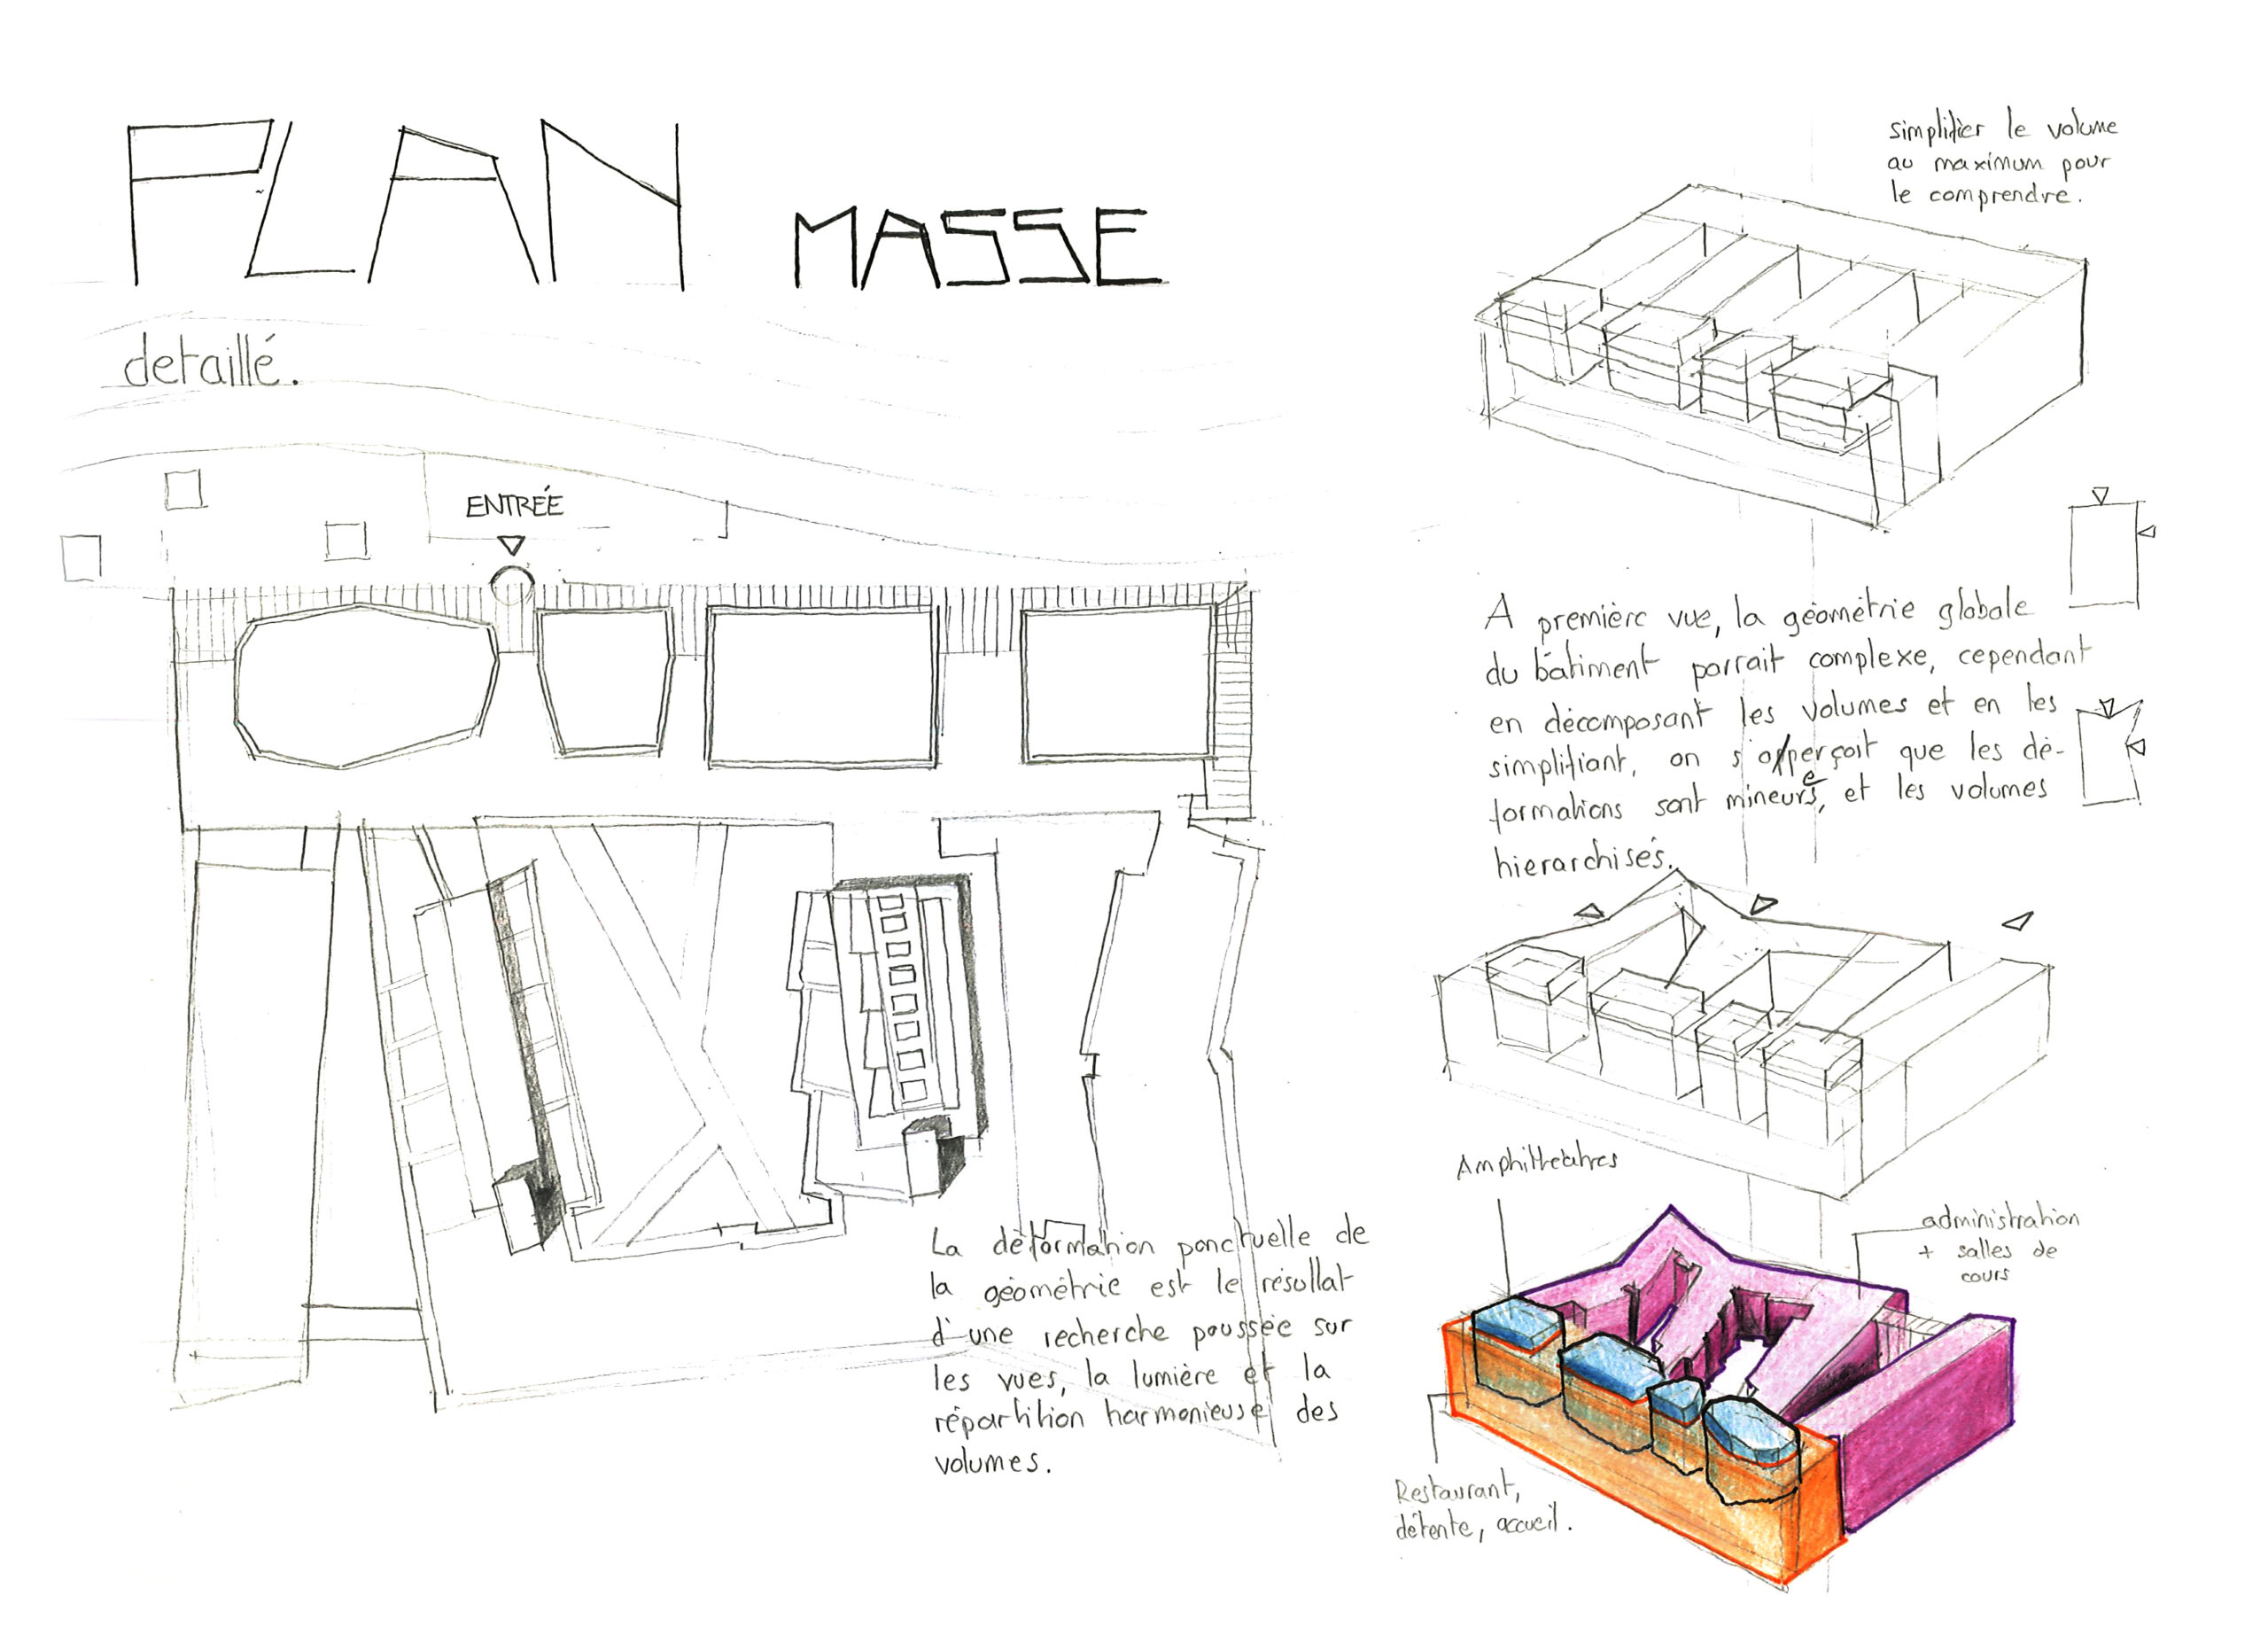 PLAN MASSE
detaillé.
ENTRÉE
La déformation ponctuelle de
la géométrie est le résultat
d'une recherche poussée sur
les vues, la lumière et la
répartition harmonieuse des
volumes.
simplifier le volume
au maximum pour
le comprendre.
A première vue, la géométrie globale
du bâtiment parrait complexe, cependant
en décomposant les volumes et en les
simplifiant, on s'apperçoit que les dé-
formations sont mineures, et les volumes
hierarchisés.
Amphithéatres
administration
+ salles de
cours
Restaurant,
détente, accueil.